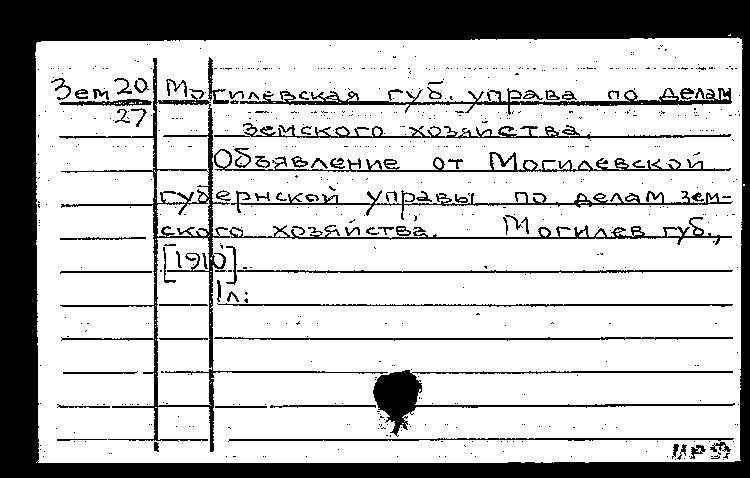 Зем 20 Могилевская губ. управа по делам
27 земского хозяйства.
Объявление от Могилевской
губернской управы по делам зем-
ского хозяйства. Могилев губ.,
[1910].
1 л.